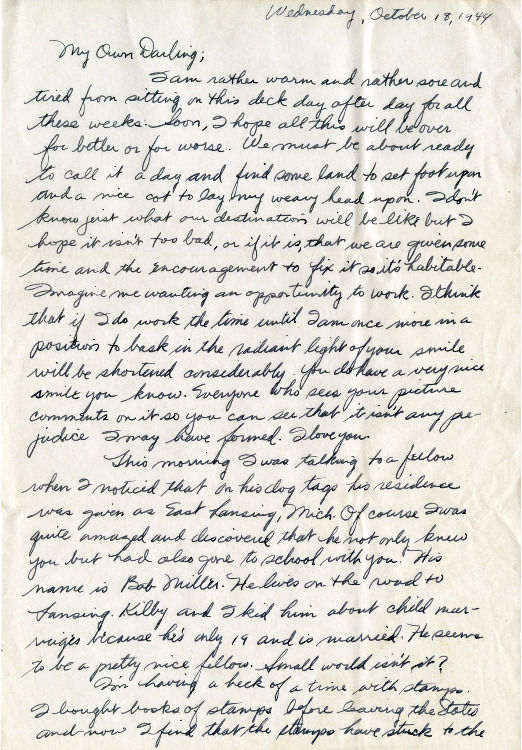 Wednesday, October 18, 1944
My Own Darling;
I am rather warm and rather sore and
tired from sitting on this deck day after day for all
these weeks. Soon, I hope all this will be over
for better or for worse. We must be about ready
to call it a day and find some land to set foot upon
and a nice cot to lay my weary head upon. I don't
know jeist what our destination will be like but I
hope it isn't too bad, or if it is, that we are given some
time and the encouragement to fix it so it's habitable.
Imagine me wanting an opportunity to work. I think
that if I do work the time until I am once more in a
position to bask in the radiant light of your smile
will be shortened considerably. You do have a very nice
smile you know. Everyone who sees your picture
comments on it so you can see that it isn't any pre-
judice I may have formed. I love you.
This morning I was talking to a fellow
when I noticed that on his dog tags his residence
was given as East Lansing, Mich. Of course I was
quite amazed and discovered that he not only knew
you but had also gone to school with you. His
name is Bob Miller. He lives on the road to
Lansing. Kilby and I kid him about child mar-
riages because he's only 19 and is married. He seems
to be a pretty nice fellow. Small world isn't it?
I'm having a heck of a time with stamps.
I bought books of stamps before leaving the States
and now I find that the stamps have stuck to the